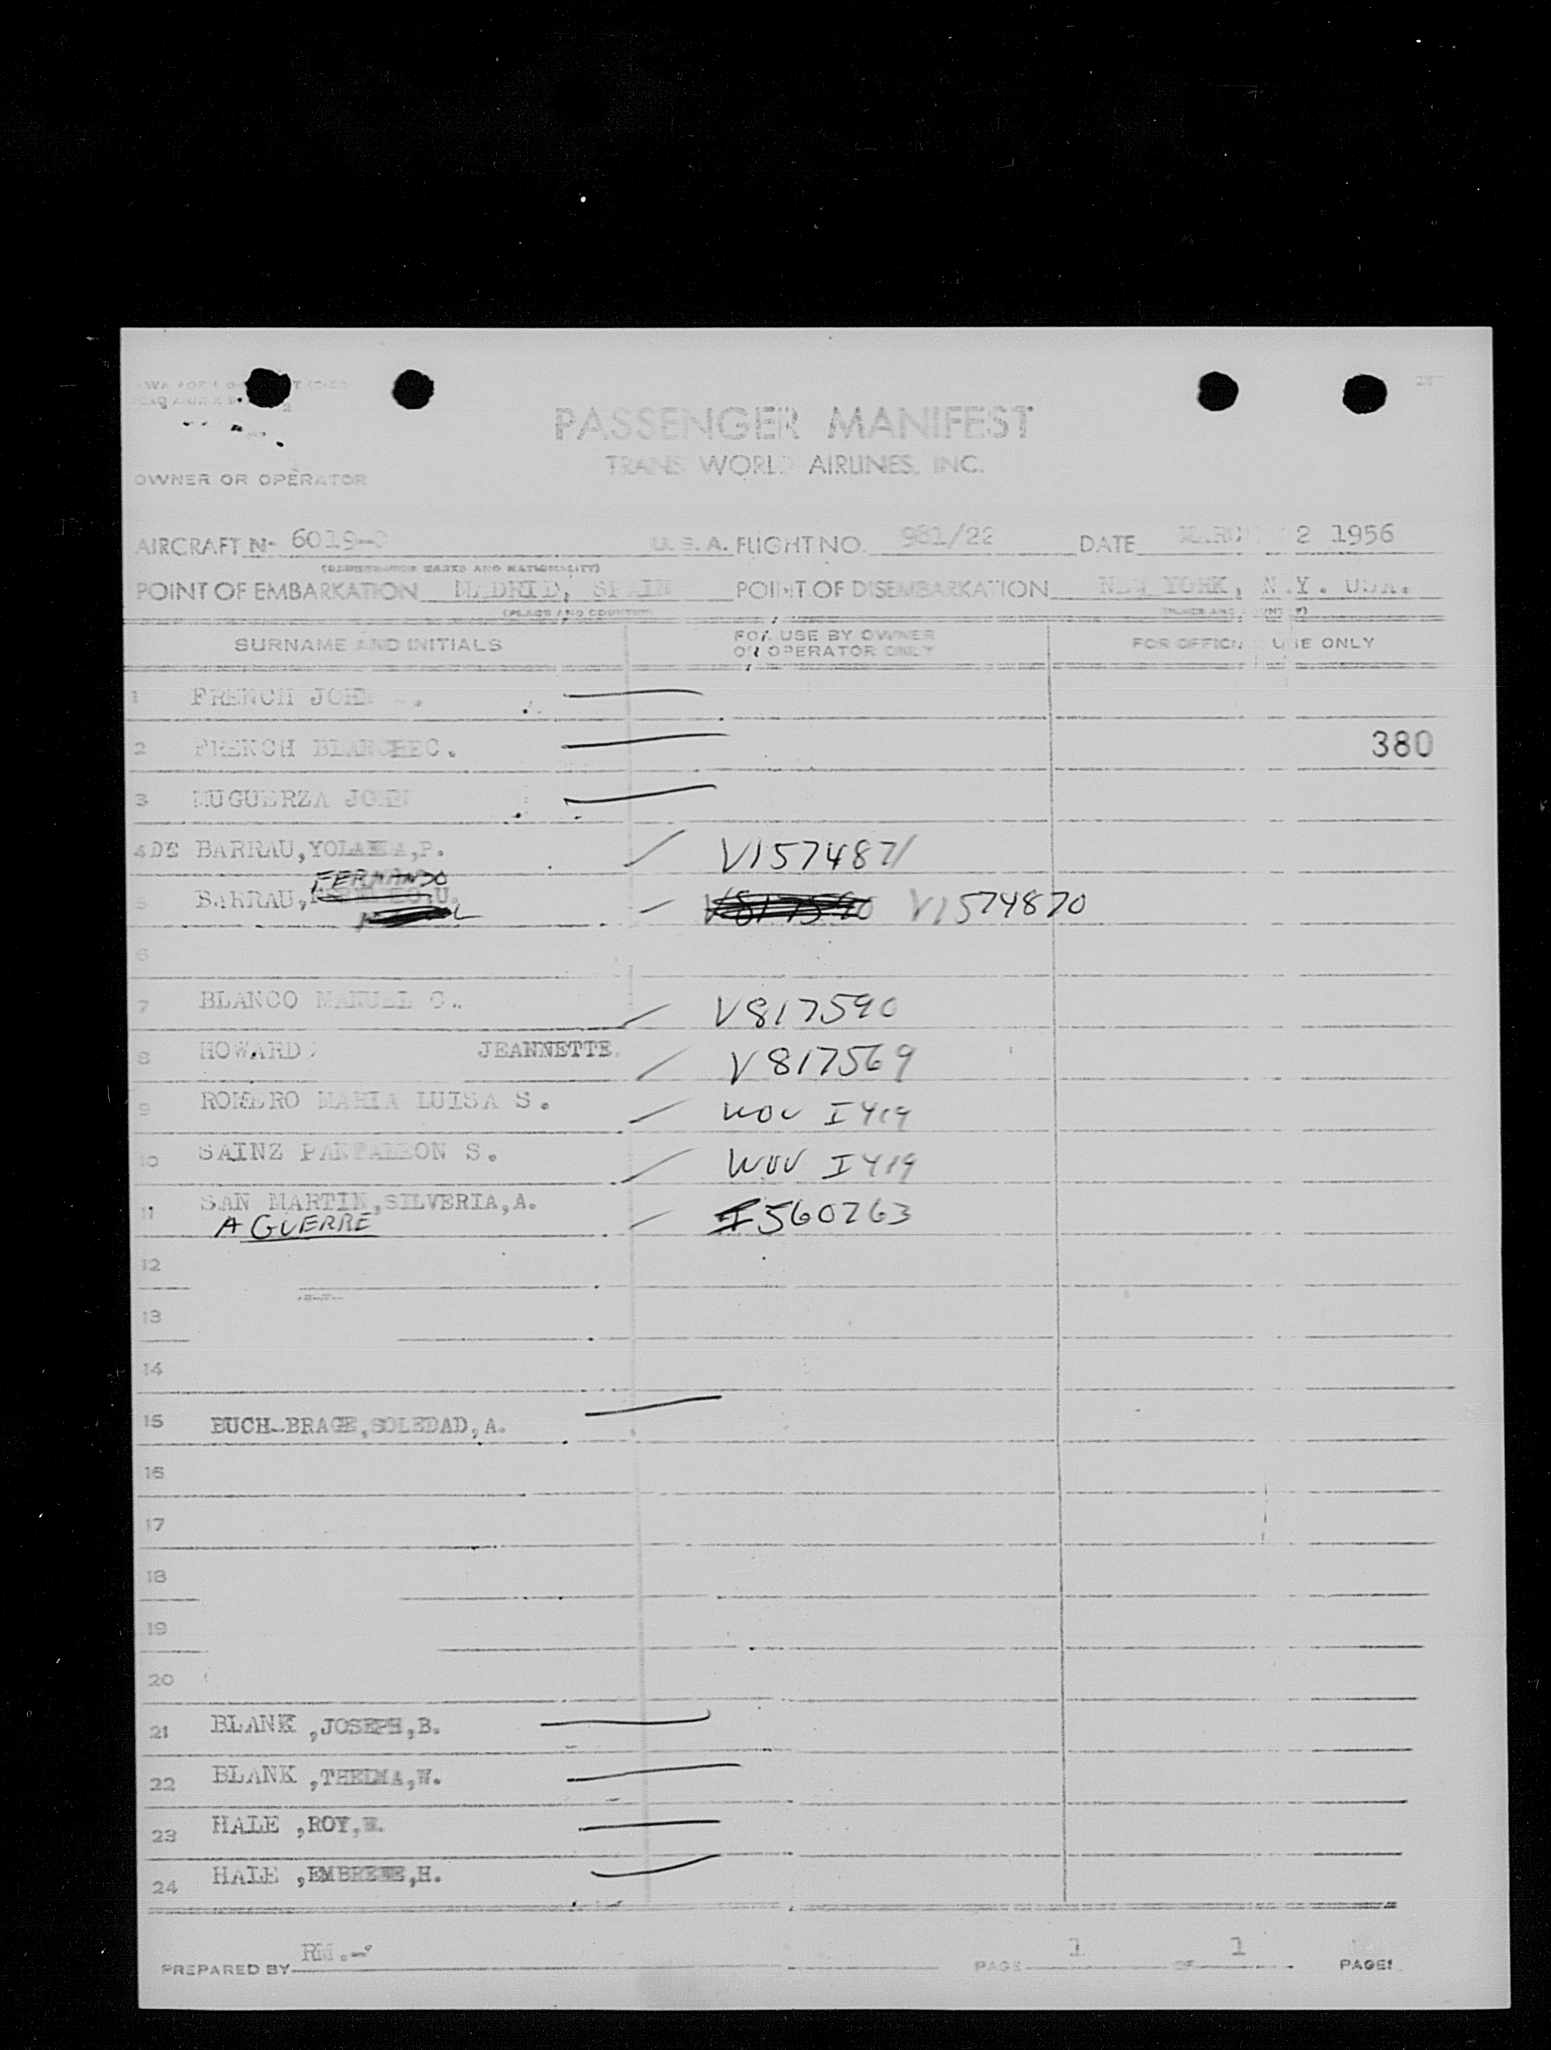 PASSENGER MANIFEST
TRANS WORLD AIRLINES, INC.
OWNER OR OPERATOR
AIRCRAFT No 6019-C U. S. A. FLIGHT NO. 981/22 DATE MARCH 2 1956
(REGISTRATION MARKS AND NATIONALITY)
POINT OF EMBARKATION MADRID, SPAIN POINT OF DISEMBARKATION NEW YORK, N.Y. USA.
(PLACE AND COUNTRY) (PLACE AND COUNTRY)
SURNAME AND INITIALS FOR USE BY OWNER OR OPERATOR ONLY FOR OFFICIAL USE ONLY
1 FRENCH JOHN
2 FRENCH BLANCHE C. 380
3 MUGUERZA JOHN
4 DE BARRAU,YOLANDA,P. V1574871
FERNANDO
5 BARRAU, U. V817590 V1574870
6
7 BLANCO MANUEL C.. V817590
8 HOWARD JEANNETTE. V817569
9 ROMERO MARIA LUISA S. WOV I 419
10 SAINZ PANTALEON S. WOV I 419
11 SAN MARTIN,SILVERIA,A. I560763
AGUERRE
12
13
14
15 BUCH-BRAGE,SOLEDAD,A.
16
17
18
19
20
21 BLANK ,JOSEPH,B.
22 BLANK ,THELMA,W.
23 HALE ,ROY,W.
24 HALE ,EMBREE,H.
PREPARED BY RM.- PAGE 1 OF 1 PAGES